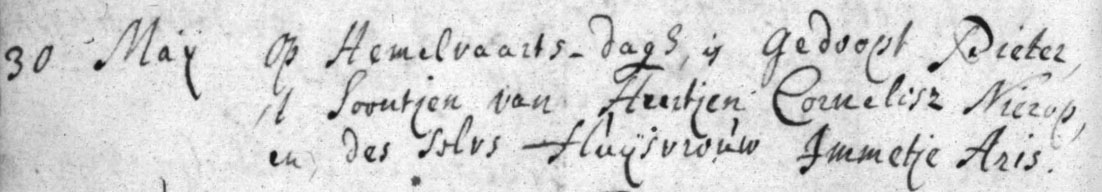 30 Maÿ op Hemelvaarts-dagh, is Gedoopt Pieter,
't Soontjen van Heertjen Cornelisz Nierop,
en des selvs Huÿsvrouw Immetje Aris.